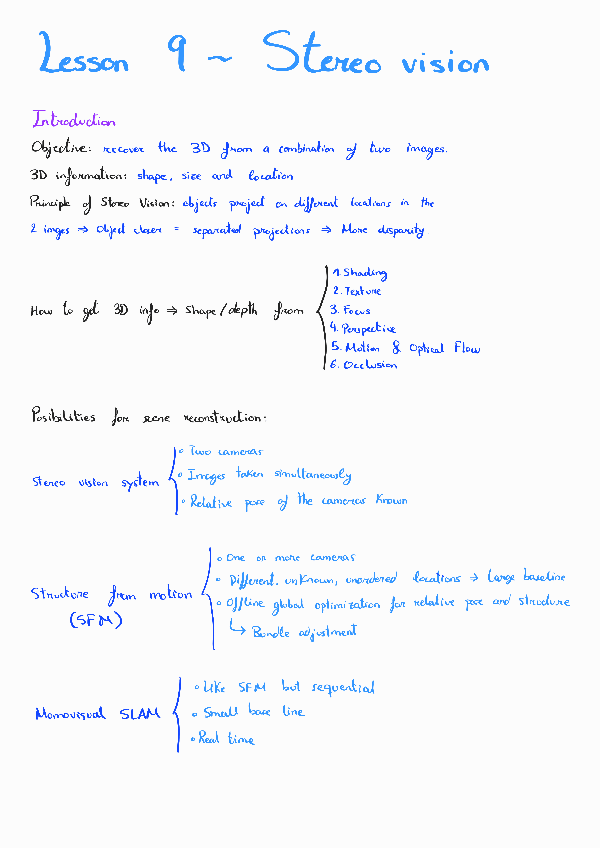 Lesson 9 ~ Stereo vision
Introduction
Objective: recover the 3D from a combination of two images.
3D information: shape, size and location
Principle of Stereo Vision: objects project on different locations in the
2 imges ⇒ Object closer = separated projections ⇒ More disparity
How to get 3D info ⇒ Shape/depth from
1. Shading
2. Texture
3. Focus
4. Perspective
5. Motion & Optical Flow
6. Occlusion
Posibilities for scene reconstruction.
Stereo vision system
∘ Two cameras
∘ Images taken simultaneously
∘ Relative pose of the cameras known
Structure from motion
(SFM)
∘ One or more cameras
∘ Different, unknown, unordered locations → Large baseline
∘ Offline global optimization for relative pose and structure
↳ Bundle adjustment
Momovisual SLAM
∘ Like SFM but sequential
∘ Small base line
∘ Real time